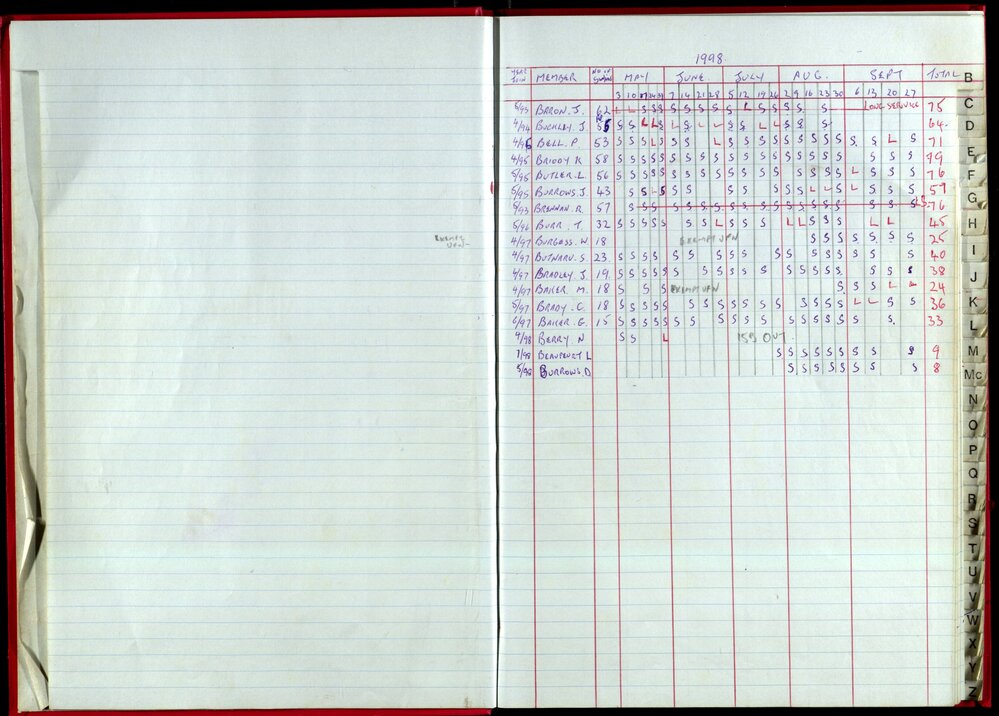 1998.
YEAR JOIN MEMBER NO OF SUNDAYS MAY JUNE JULY AUG. SEPT TOTAL
3 10 17 24 31 7 14 21 28 5 12 19 26 2 9 16 23 30 6 13 20 27
5/93 BARON. J. 62 L L S S S S S S S S L S S S S S LONG SERVICE 75
4/94 BUCKLEY. J. S S L L S L S L L S S L L S S S 64
BELL. P. 53 S S S L S S S L S S S S S S S S S S S L S 71
4/95 BRIODY K 58 S S S S S S S S S S S S S S S S S S S S S 79
5/95 BUTLER. L. 56 S S S S S S S S S S S S S S S S S L S S S 76
5/95 BURROWS. J. 43 S S L S S S S S S S S L L S L S S S 59
5/93 BRENNAN. R. 57 S S S S S S S S S S S S S S S S S S S S 76
5/96 BURR. T. 32 S S S S S S S L S S S L L S S S L L 45
EXEMPT
4/97 BURGESS. W 18 EXEMPT S S S S S S S 25
4/97 BUTNARU. S. 23. S S S S S S S S S S S S S S S S S 40
4/97 BRADLEY. J. 19. S S S S S S S S S S S S S S S S S S S 38
4/97 BAKER M. 18 S S S EXEMPT S S S L 24
5/97 BRADY. C. 18 S S S S S S S S S S S S S S S S L L S S 36
6/97 BAKER. G. 15 S S S S S S S S S S S S S S S S S S S. 33
4/98 BERRY. N S S L OUT
7/98 BEAUPEURT L S S S S S S S S S 9
5/98 BURROWS. D S S S S S S S S 8
B
C
D
E
F
G
H
I
J
K
L
M
Mc
N
O
P
Q
R
S
T
U
V
W
X
Y
Z